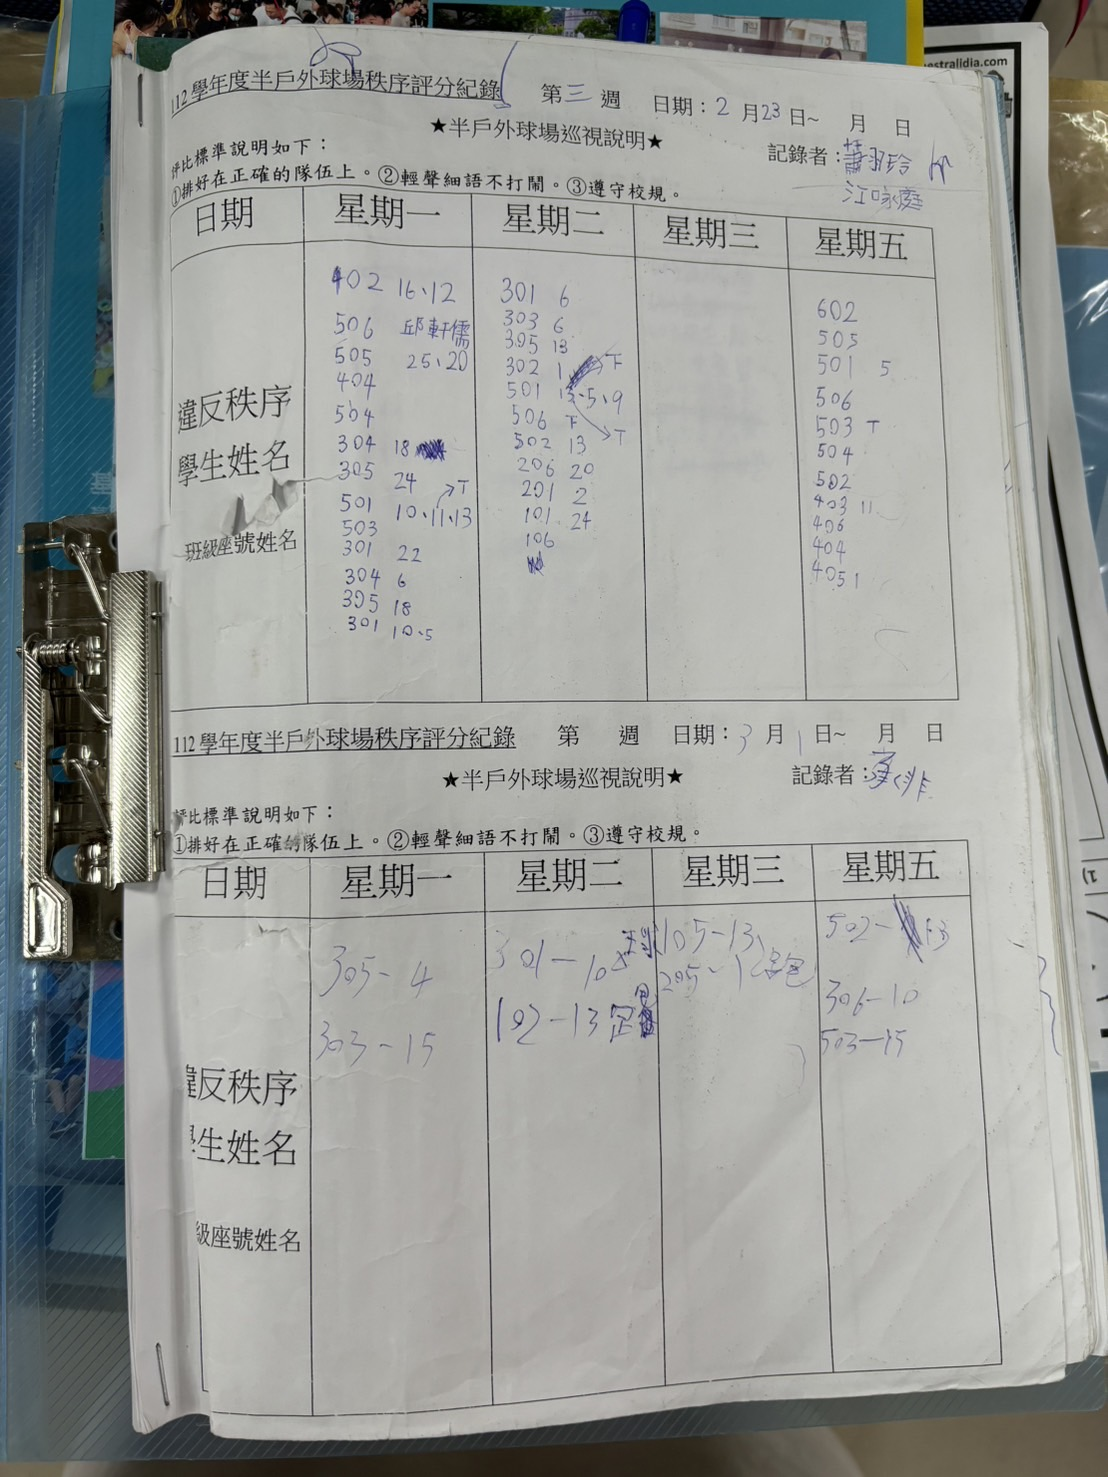 estralidia.com
112學年度半戶外球場秩序評分紀錄 第三週 日期：2月23日~ 月 日
★半戶外球場巡視說明★
記錄者：
江咏庭
評比標準說明如下：
①排好在正確的隊伍上。②輕聲細語不打鬧。③遵守校規。
日期 星期一 星期二 星期三 星期五
違反秩序
學生姓名
班級座號姓名
402 16、12
506 邱軒儒
505 25、20
404
504
304 18
305 24
501 10、11、13 →T
503
301 22
304 6
305 18
301 10、5
301 6
303 6
305 13
302 1 →下
501 13、5、9 →T
506 下
502 13
206 20
201 2
101 24
106
602
505
501 5
506
503 T
504
502
403 11
406
404
405 1
112學年度半戶外球場秩序評分紀錄 第 週 日期：3月1日~ 月 日
★半戶外球場巡視說明★
記錄者：
評比標準說明如下：
①排好在正確的隊伍上。②輕聲細語不打鬧。③遵守校規。
日期 星期一 星期二 星期三 星期五
違反秩序
學生姓名
級座號姓名
305-4
303-15
301-10
102-13
105-13
205-1
502-
306-10
503-15